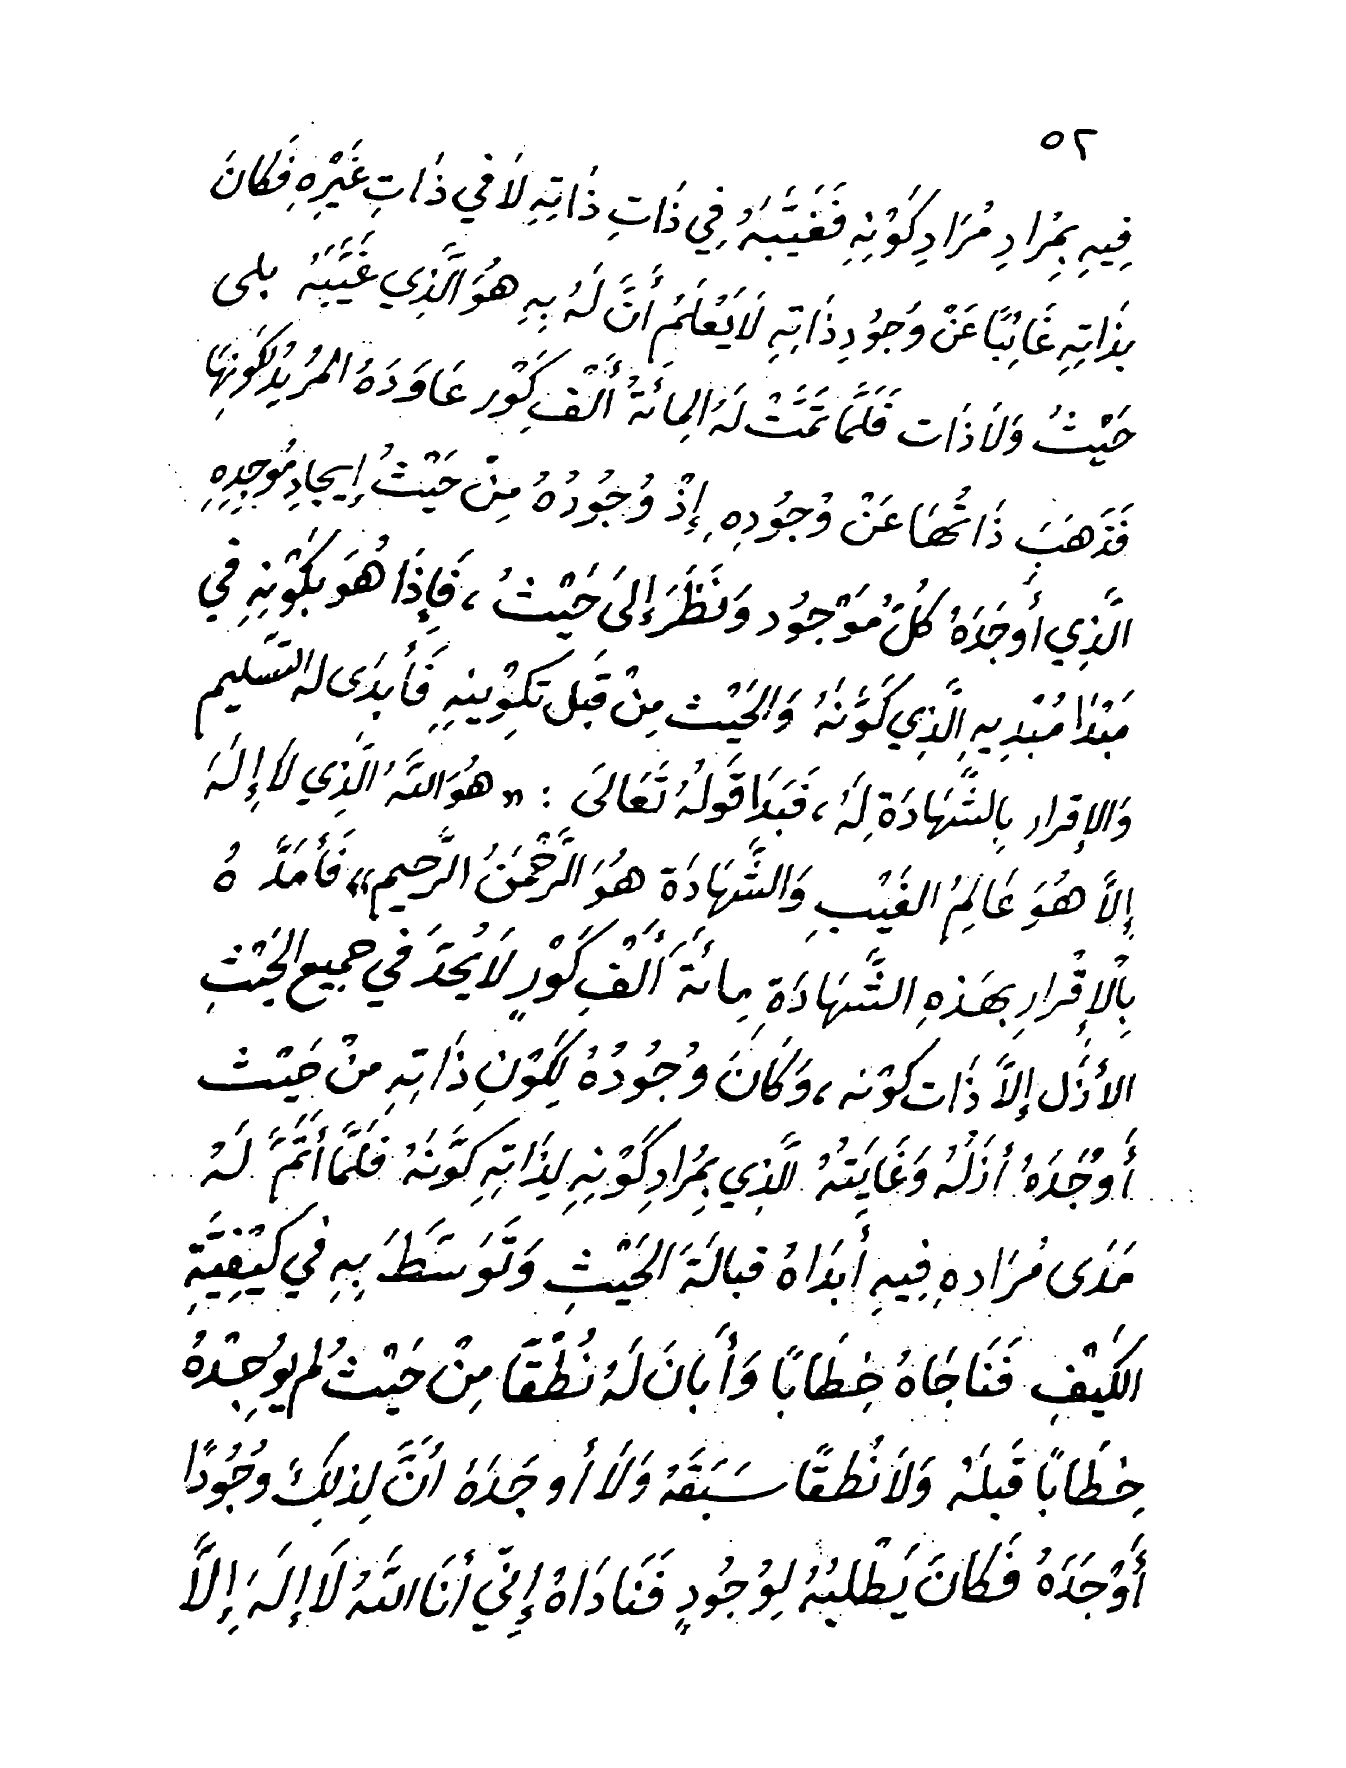 ٥٢
فِيهِ بِمُرَادِ مُرَادِ كَوْنِهِ فَغَيَّبَهُ فِي ذَاتِ ذَاتِهِ لَا في ذَاتِ غَيْرِهِ فَكَانَ
بِذَاتِهِ غَائِبًا عَنْ وُجُودِ ذَاتِهِ لَا يَعْلَمُ أَنَّ لَهُ بِهِ هُوَ الَّذِي غَيَّبَهُ بلى
حَيْثُ وَلَا ذَات فَلَمَّا تَمَّتْ لَهُ المِائَةُ أَلْفِ كَوْر عَاوَدَهُ المُرِيدُ لِكَوْنِهَا
فَذَهَبَ ذَاتُهَا عَنْ وُجُودِهِ إِذْ وُجُودُهُ مِنْ حَيْثُ إِيجادِ مُوجِدِهِ
الَّذِي أُوجَدَهُ كُلُّ مَوْجُود وَنَظَرَ إِلىَ حَيْثُ ، فَإِذَا هُوَ بِكَوْنِهِ في
مَبْدَا مُبْدِيهِ الَّذِي كَوَّنَهُ وَالحَيْث مِنْ قَبْل تَكْوِينِهِ فَأَبدَى له التَّسْلِيم
وَالإِقرار بِالشَّهَادَة لَهُ ، فَبَدَا قَولُهُ تَعَالىَ : « هُوَ اللَّهُ الَّذِي لَا إِلَهَ
إِلاَّ هُوَ عَالِمُ الغَيْبِ وَالشَّهَادَة هُوَ الرَّحْمَنُ الرَّحِيم » فَأَمَدَّهُ
بِالْإِقْرارِ بِهَذِهِ الشَّهَادَة مِائَةَ أَلْفِ كَوْرٍ لَا يُحَدّ في جمِيع الحَيْثِ
الأَزَل إِلاَّ ذَات كَوْنه ، وَكَانَ وُجُودُهُ لِكَوْنِ ذَاتِهِ مِنْ حَيْث
أَوْجَدَهُ أَزَلَهُ وَغَايَتهُ الَّذِي بِمُرَادِ كَوْنِهِ لِذَاتِهِ كَوَّنَهُ فَلَمَّا أَتَمَّ لَهُ
مَدَى مُرَادهِ فِيهِ أَبْدَاهُ قبالَةَ الحَيْثِ وَتَوَسَّطَ بِهِ فِي كَيْفِيَّةِ
الكَيْفِ فَنَاجَاهُ خِطَابًا وَأَبَانَ لَهُ نُطْقًا مِنْ حَيْثُ لم يُوجِدْهُ
خِطَابًا قَبلَهُ وَلَا نُطْقًا سَبَقَهُ وَلَا أَوجَدَهُ أَنَّ لِذلِكَ وُجُودًا
أَوْجَدَهُ فَكَانَ يَطْلبُهُ لِوُجُودٍ فَنَادَاهُ إِنِّي أَنَا اللَّهُ لَا إِلَهَ إِلاَّ